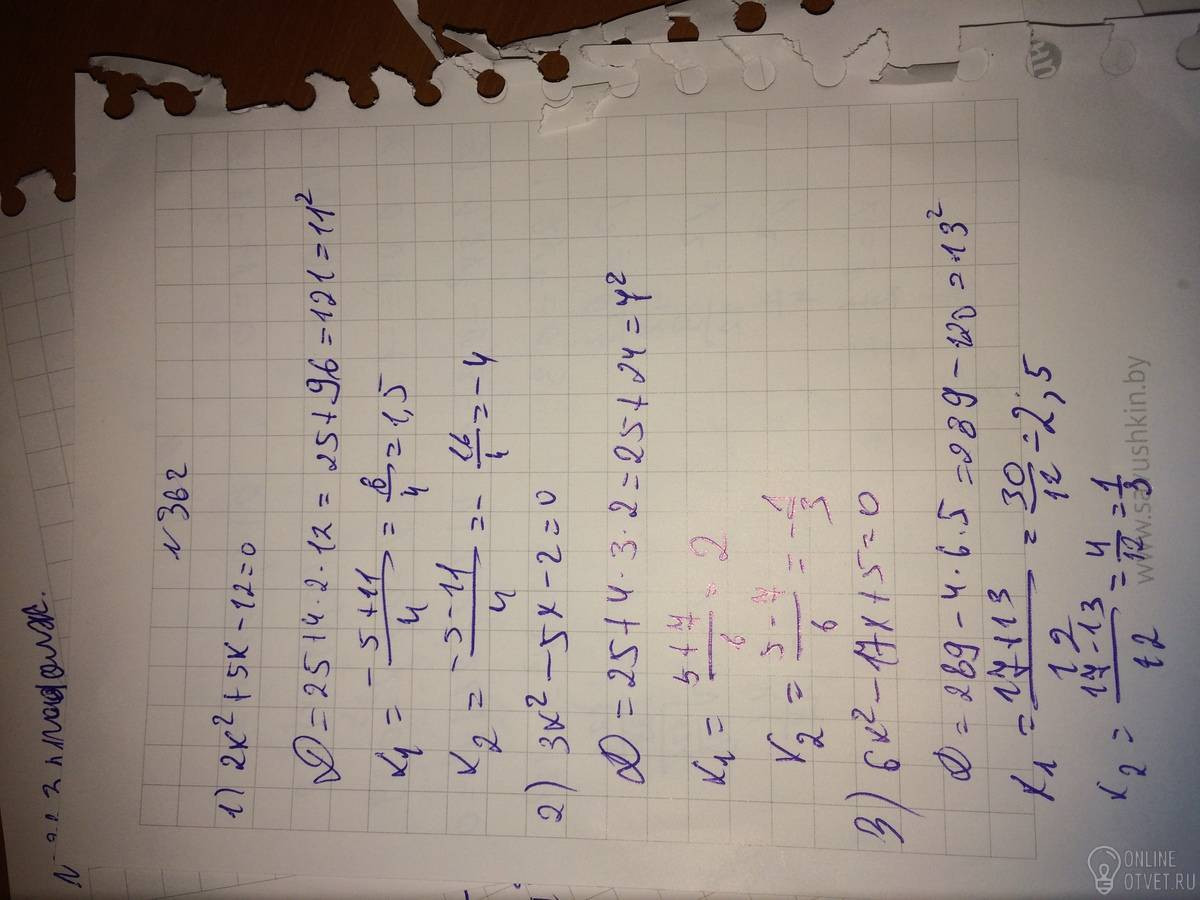 N 362
1) 2x² + 5x - 12 = 0
D = 25 + 4 · 2 · 12 = 25 + 96 = 121 = 11²
x₁ = (-5 + 11)/4 = 6/4 = 1,5
x₂ = (-5 - 11)/4 = - 16/4 = - 4
2) 3x² - 5x - 2 = 0
D = 25 + 4 · 3 · 2 = 25 + 24 = 7²
x₁ = (5 + 7)/6 = 2
x₂ = (5 - 7)/6 = - 1/3
3) 6x² - 17x + 5 = 0
D = 289 - 4 · 6 · 5 = 289 - 120 = 13²
x₁ = (17 + 13)/12 = 30/12 = 2,5
x₂ = (17 - 13)/12 = 4/12 = 1/3
www.savushkin.by
ONLINE
OTVET.RU